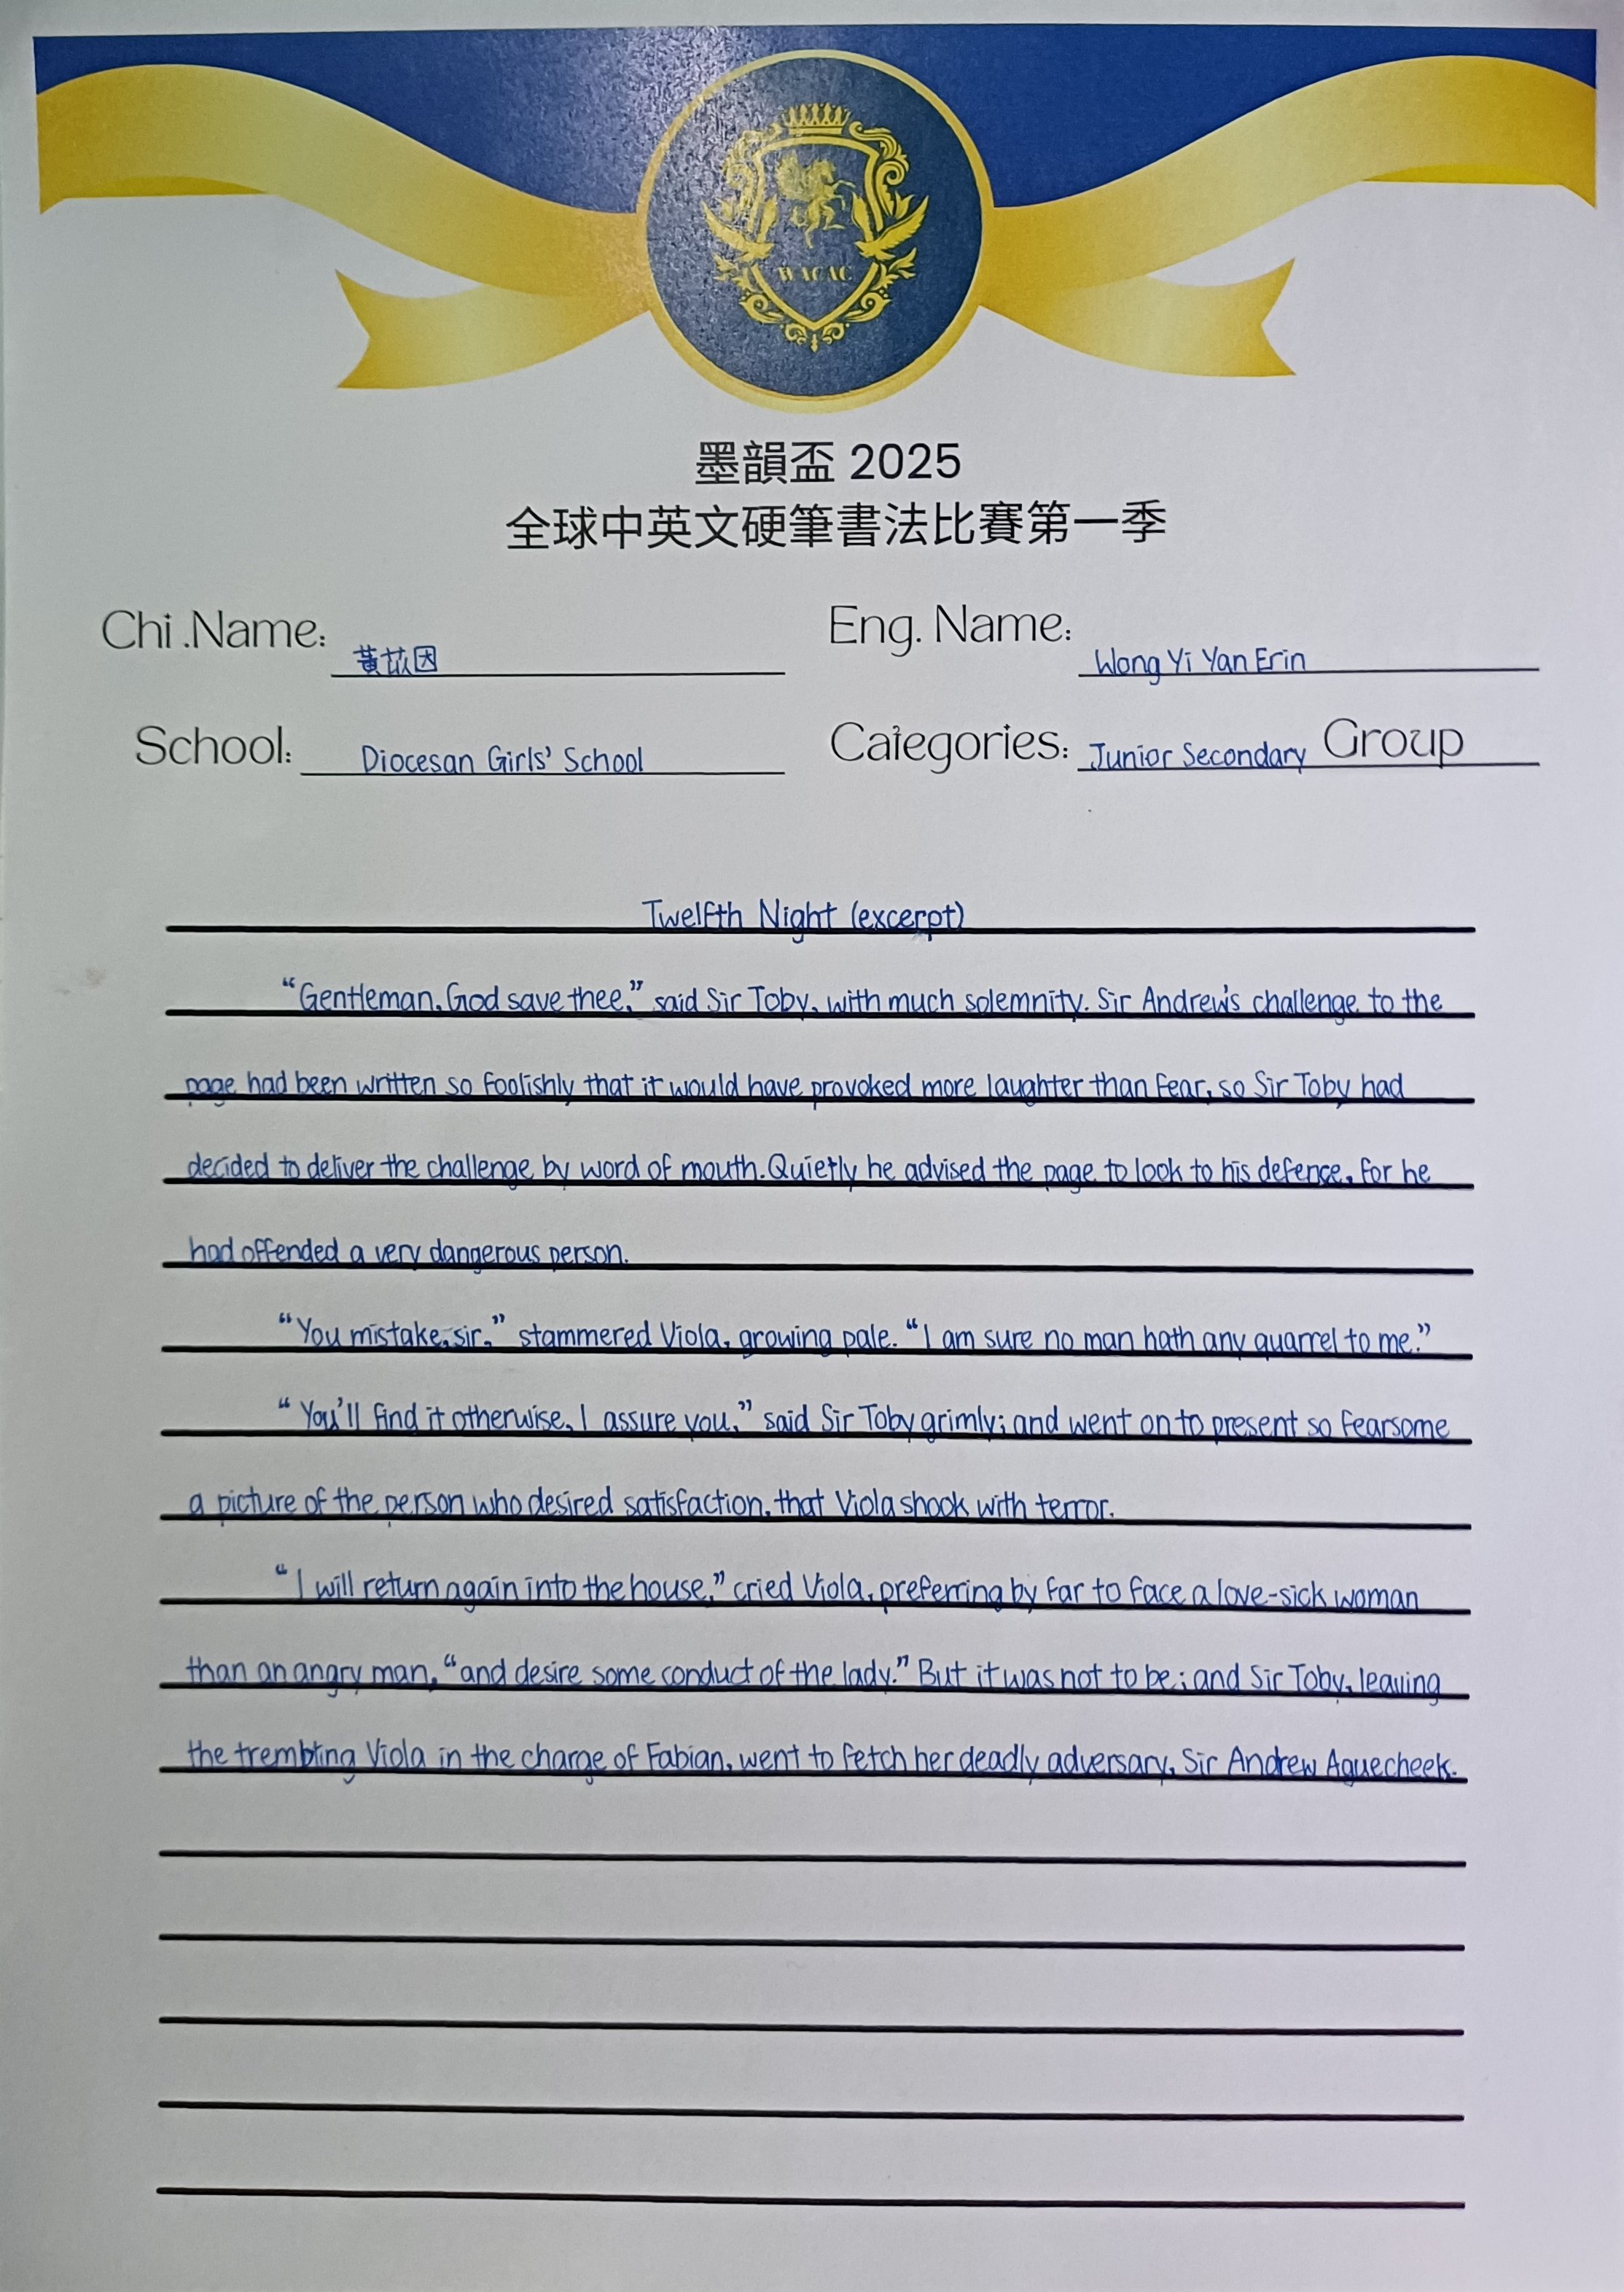 WACAC
墨韻盃 2025
全球中英文硬筆書法比賽第一季
Chi .Name: 黃苡因
Eng. Name: Wong Yi Yan Erin
School: Diocesan Girls' School
Categories: Junior Secondary Group
Twelfth Night (excerpt)
“Gentleman, God save thee,” said Sir Toby, with much solemnity. Sir Andrew's challenge to the
page had been written so foolishly that it would have provoked more laughter than fear, so Sir Toby had
decided to deliver the challenge by word of mouth. Quietly he advised the page to look to his defence, for he
had offended a very dangerous person.
“You mistake, sir,” stammered Viola, growing pale. “I am sure no man hath any quarrel to me.”
“You'll find it otherwise, I assure you,” said Sir Toby grimly; and went on to present so fearsome
a picture of the person who desired satisfaction, that Viola shook with terror.
“I will return again into the house,” cried Viola, preferring by far to face a love-sick woman
than an angry man, “and desire some conduct of the lady.” But it was not to be; and Sir Toby, leaving
the trembling Viola in the charge of Fabian, went to fetch her deadly adversary, Sir Andrew Aguecheek.